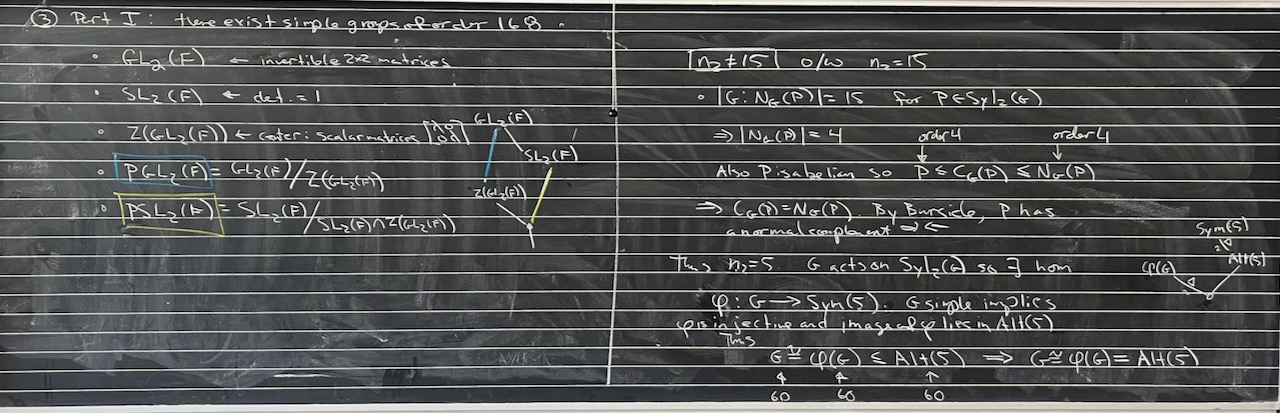 ③ Part I: there exist simple groups of order 168.
• GL₂(F) ← invertible 2x2 matrices
• SL₂(F) ← det. = 1
• Z(GL₂(F)) ← center: scalar matrices
• PGL₂(F) = GL₂(F)/Z(GL₂(F))
• PSL₂(F) = SL₂(F)/SL₂(F)∩Z(GL₂(F))
GL₂(F)
SL₂(F)
Z(GL₂(F))
n₂≠15 o/w n₂=15
• |G:N_G(P)| = 15 for P∈Syl₂(G)
⇒ |N_G(P)| = 4 order 4 order 4
Also P is abelian so P ≤ C_G(P) ≤ N_G(P)
⇒ C_G(P) = N_G(P). By Burside, P has
a normal complement ⇒⇐
Thus n₂=5. G acts on Syl₂(G) so ∃ hom
φ: G → Sym(5). G simple implies
φ is injective and image of φ lies in Alt(5)
Thus
G ≅ φ(G) ≤ Alt(5) ⇒ G ≅ φ(G) = Alt(5)
60 60 60
Sym(5)
2
φ(G) Alt(5)